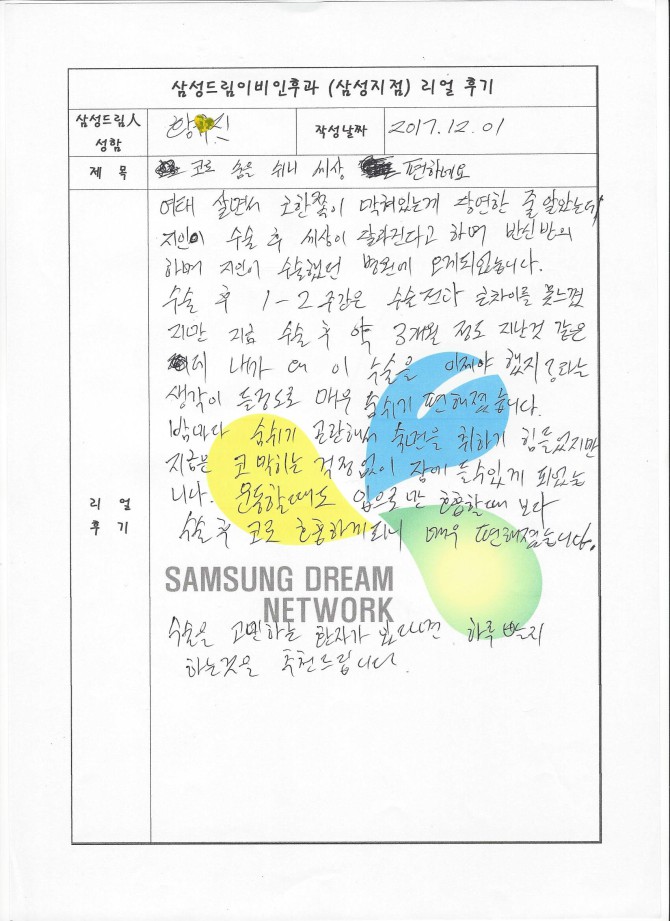 삼성드림이비인후과 (삼성지점) 리얼 후기
삼성드림人
성함
작성날짜
2017.12.01
제 목
코로 숨을 쉬니 세상 편하네요
여태 살면서 코한쪽이 막혀있는게 당연한 줄 알았는데
지인이 수술 후 세상이 달라진다고 하며 반신반의
하며 지인이 수술했던 병원에 오게되었습니다.
수술 후 1-2주간은 수술전과 큰차이를 못느꼈
지만 지금 수술 후 약 3개월 정도 지난것 같은
데 내가 왜 이 수술을 이제야 했지? 라는
생각이 들정도로 매우 숨쉬기 편해졌습니다.
밤마다 숨쉬기 곤란해서 숙면을 취하기 힘들었지만
지금은 코막히는 걱정없이 잠에 들수있게 되었습
니다. 운동할때도 입으로만 호흡할때 보다
수술 후 코로 호흡하게되니 매우 편해졌습니다.
리 얼
후 기
SAMSUNG DREAM
NETWORK
수술을 고민하는 환자가 있다면 하루빨리
하는것을 추천드립니다.